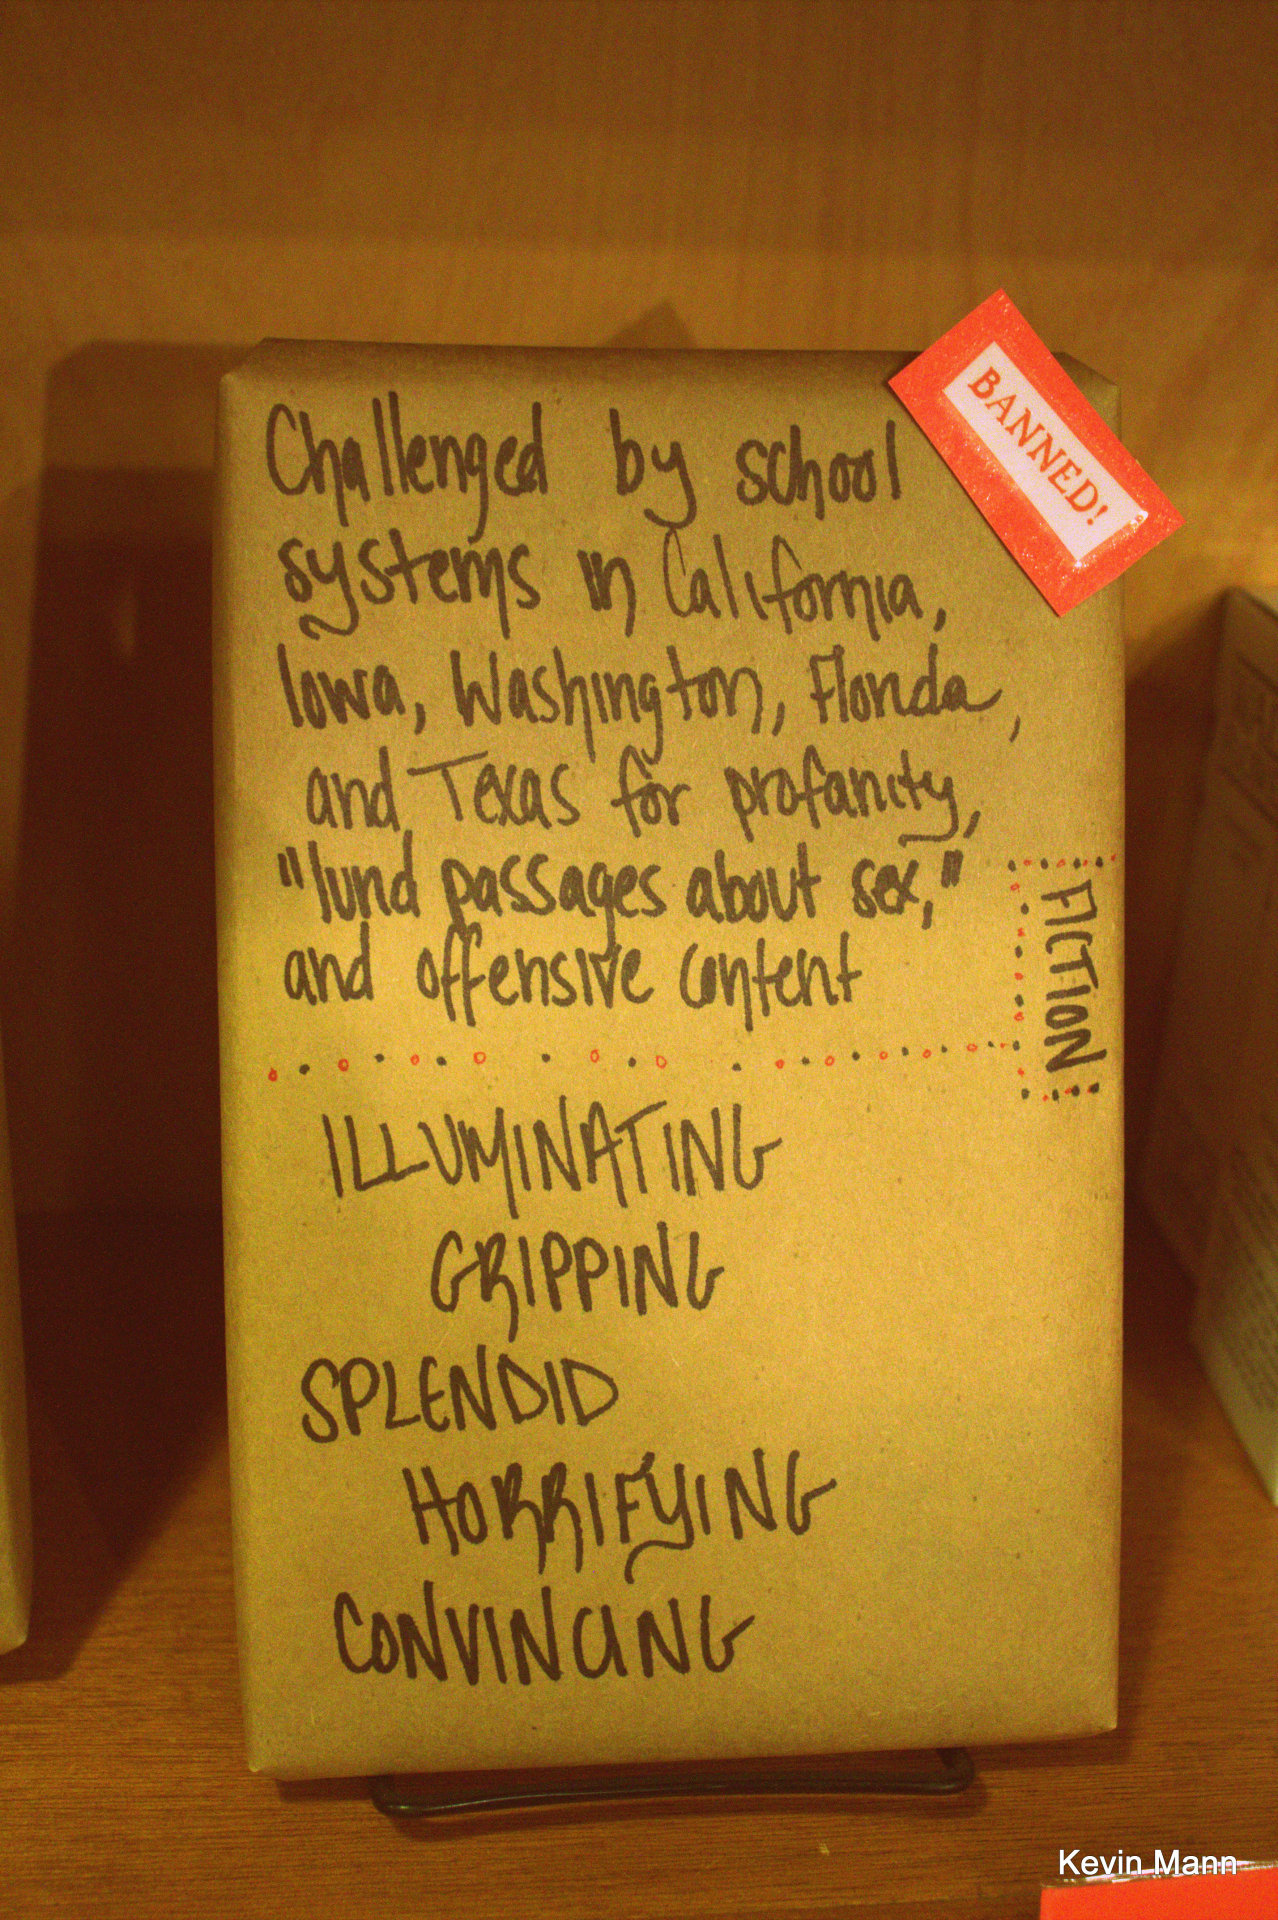 BANNED!
Challenged by school
systems in California,
Iowa, Washington, Florida,
and Texas for profanity,
"lurid passages about sex,"
and offensive content
FICTION
ILLUMINATING
GRIPPING
SPLENDID
HORRIFYING
CONVINCING
Kevin Mann